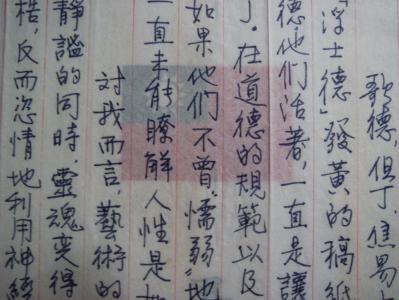 歌德，但丁．焦易
「浮士德」發黃的稿紙
德他們活著，一直是讓
了．在道德的規範以及
如果他們不曾“懦弱”地
一直未能瞭解人性是
對我而言，藝術的
靜謐的同時，靈魂變得
梏，反而恣情地利用神經